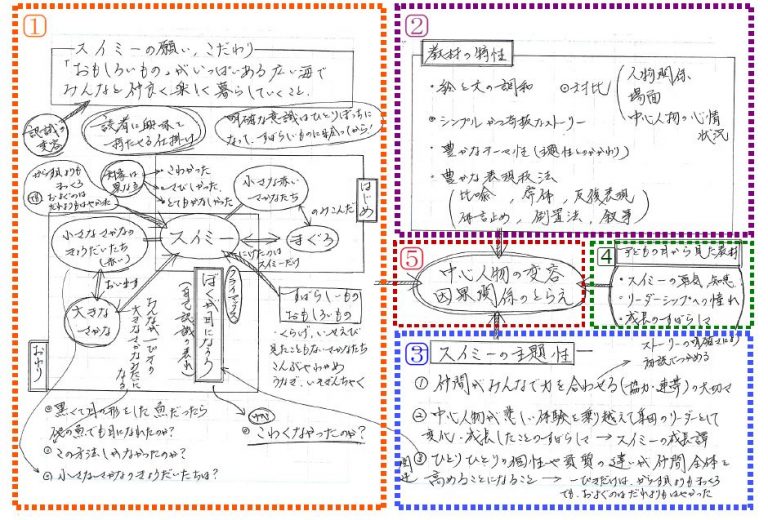 ①
スイミーの願い，こだわり
「おもしろいもの」がいっぱいある広い海で
みんなと仲良く楽しく暮らしていくこと．
認識の変容
読者に興味を持たせる仕掛け
明確な意識はひとりぼっちに
なって，すばらしいものに出会ってから
からす貝よりも
まっくろ
およぐのは
だれよりもはやかった
こわかった
さびしかった
とてもかなしかった
小さな赤い
さかなたち
のみこんだ
はじめ
スイミー
まぐろ
にげたのは
スイミーだけ
小さなさかなの
きょうだいたち
（赤い）
おいます
大きな
さかな
おわり
みんなが一ぴきの
大きなさかなみたいに
なる
ぼくが目になろう
クライマックス
すばらしいもの
おもしろいもの
・くらげ，いせえび
見たこともないさかなたち
こんぶやわかめ
うなぎ，いそぎんちゃく
黒くて目の形をした魚だったら
他の魚でも目になれたのか？
この方法しかなかったのか？
小さなさかなのきょうだいたちは？
こわくなかったのか？
②
教材の特性
・絵と文の調和
対比
人物関係
場面
中心人物の心情
状況
シンプルかつ奇抜なストーリー
・豊かなテーマ性（主題性とのかかわり）
・豊かな表現技法
比喩，常体，反復表現
体言止め，倒置法，叙事
⑤
中心人物の変容
因果関係のとらえ
④
子どもの目から見た教材
・スイミーの勇気，知恵
・リーダーシップへの憧れ
・成長のすばらしさ
③
スイミーの主題性
ストーリーの
① 仲間がみんなで力を合わせる（協力・連帯）の大切さ
② 中心人物が悲しい体験を乗り越えて集団のリーダーとして
変化・成長したことのすばらしさ → スイミーの成長譚
③ ひとりひとりの個性や資質の違いが仲間全体を
高めることになること → 一ぴきだけは，からす貝よりもまっくろ
でも，およぐのはだれよりもはやかった
関連